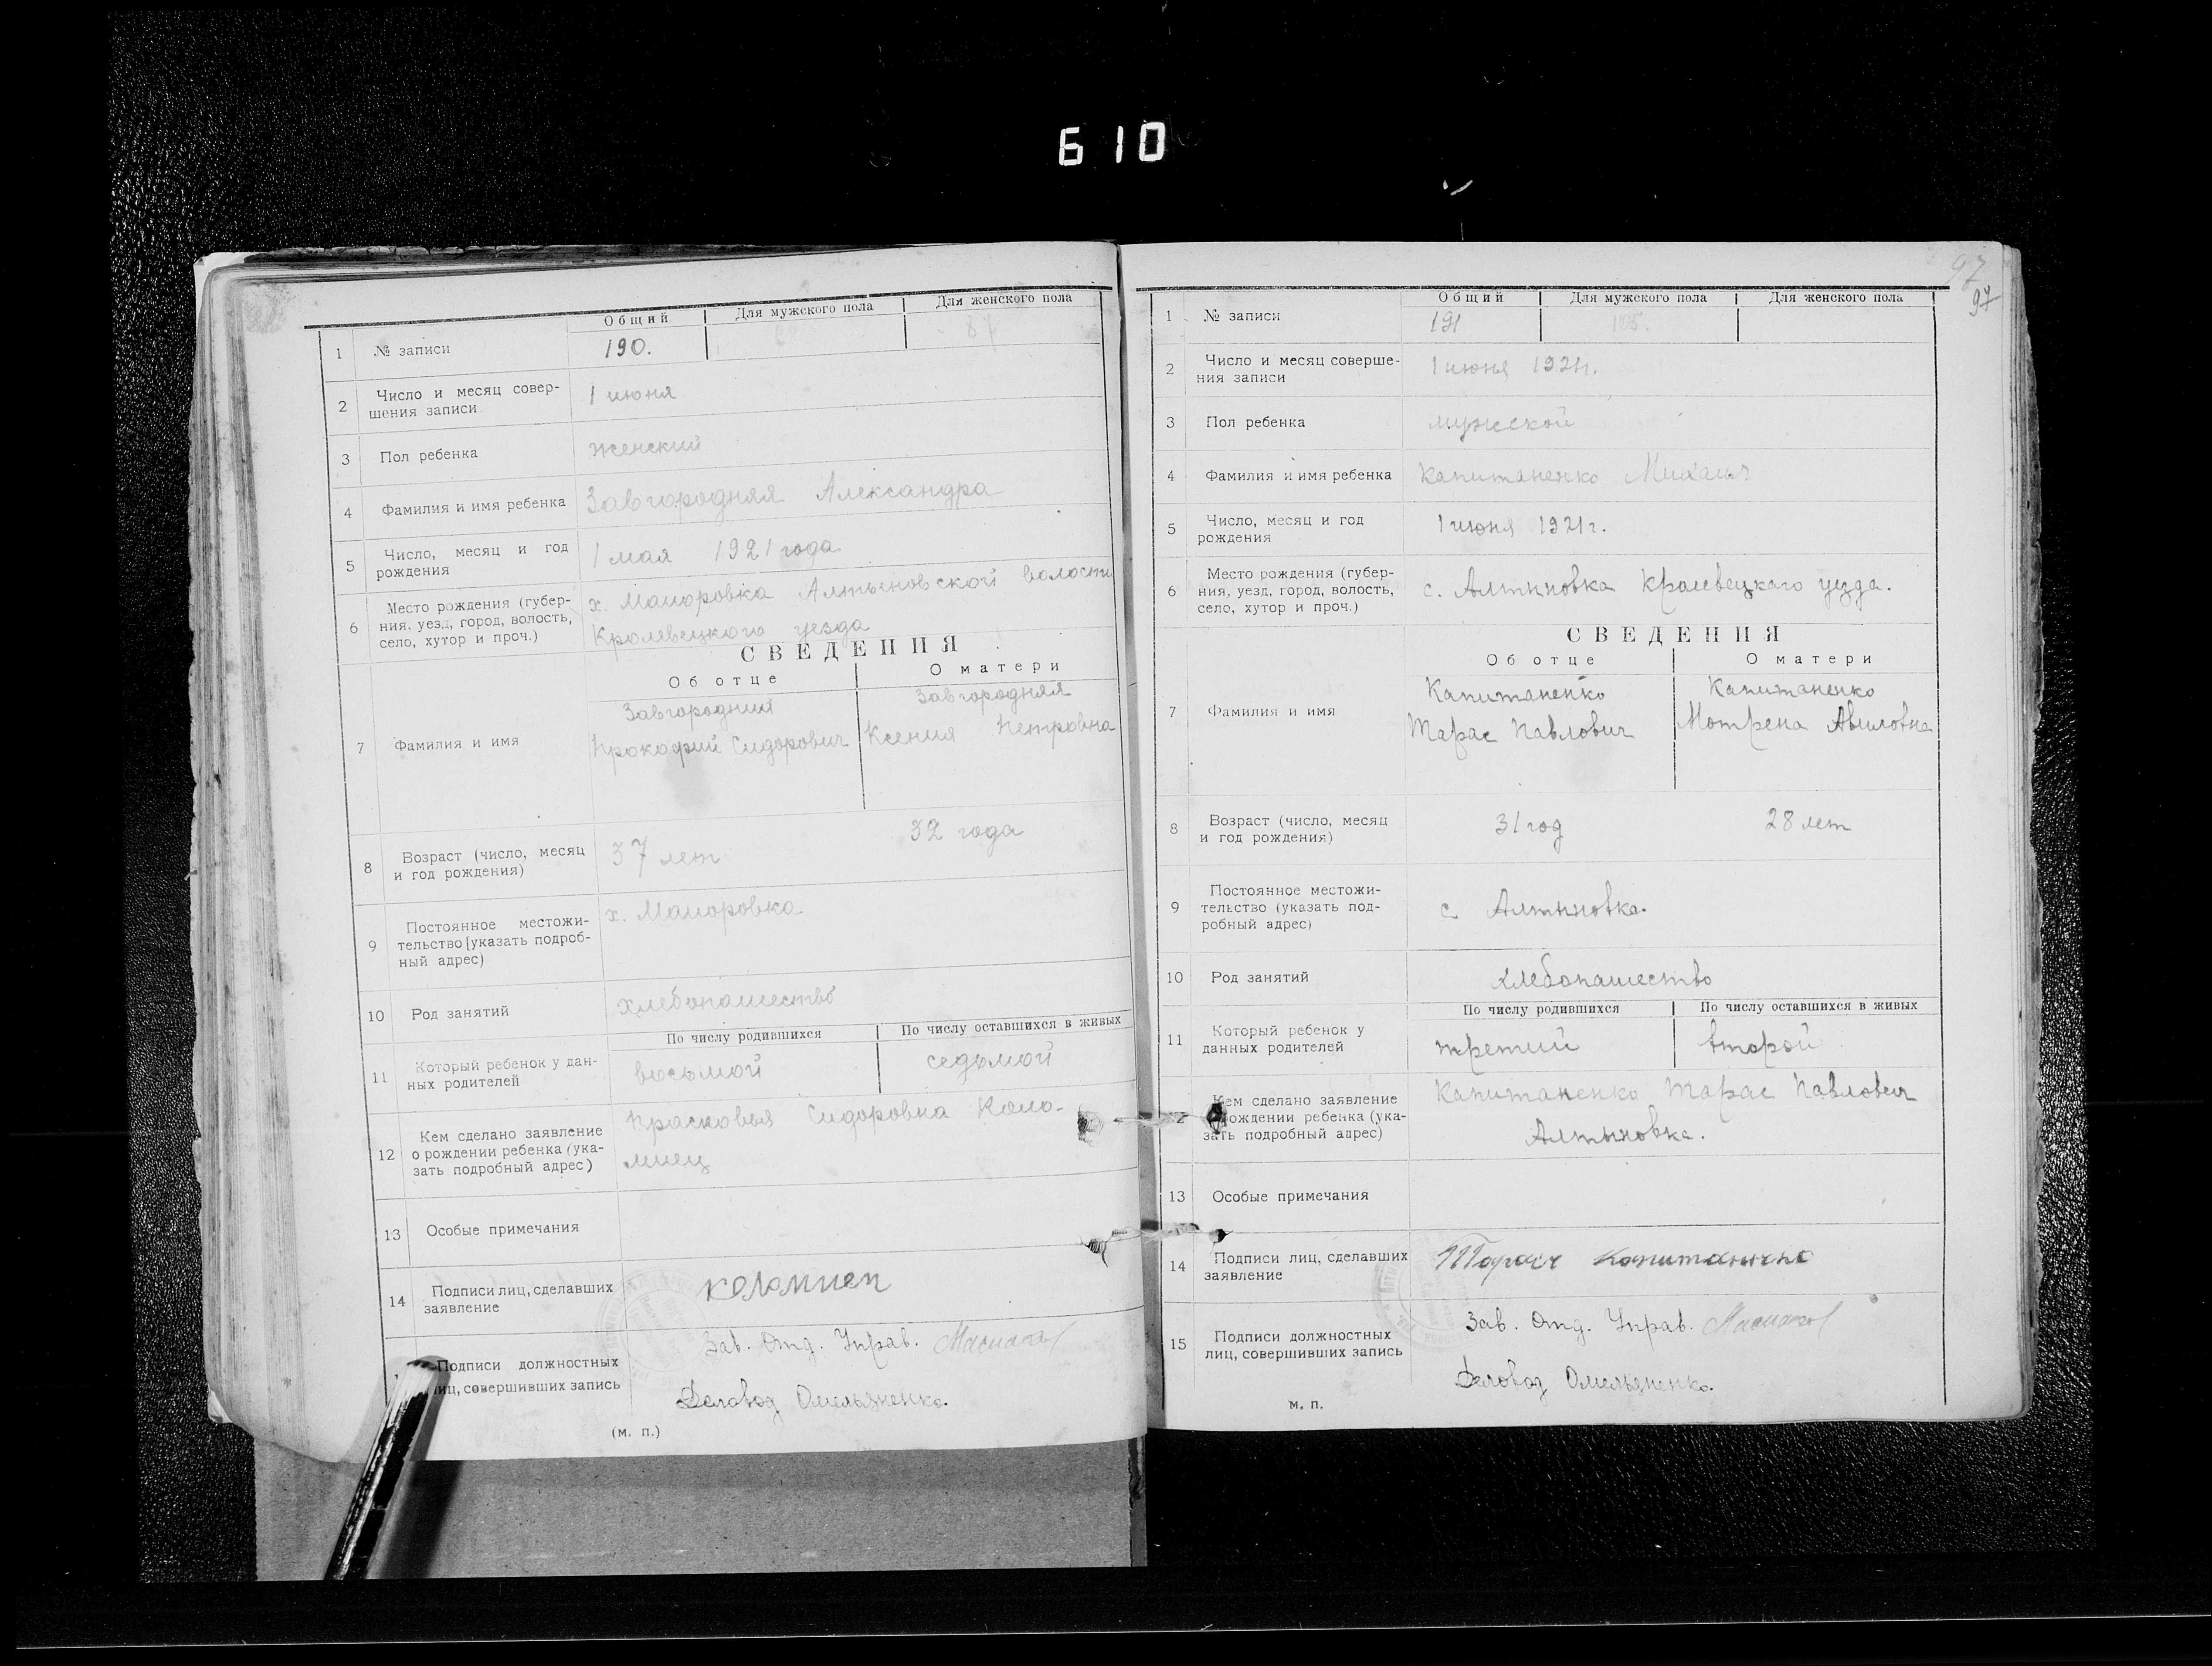 610
Общий Для мужского пола Для женского пола
1 № записи 190. 87
2 Число и месяц совер-
шения записи 1 июня
3 Пол ребенка женский
4 Фамилия и имя ребенка Завгородняя Александра
5 Число, месяц и год
рождения 1 мая 1921 года
6 Место рождения (губер-
ния, уезд, город, волость,
село, хутор и проч.)
х. Маиоровка Алтыновской волости
Кролевецкого уезда
СВЕДЕНИЯ
Об отце О матери
7 Фамилия и имя
Завгородний
Прокофий Сидорович
Завгородняя
Ксения Петровна
8 Возраст (число, месяц
и год рождения)
37 лет 32 года
9 Постоянное местожи-
тельство [указать подроб-
ный адрес)
х. Маиоровка
10 Род занятий хлебопашество
По числу родившихся По числу оставшихся в живых
11 Который ребенок у дан-
ных родителей
восьмой седьмой
12 Кем сделано заявление
о рождении ребенка (ука-
зать подробный адрес)
Прасковья Сидоровна Коло-
миец
13 Особые примечания
14 Подписи лиц, сделавших
заявление
коломиец
Подписи должностных
лиц, совершивших запись
Зав. Отд. Управ.
Деловод Омельяненко.
(м. п.)
97
97
Общий Для мужского пола Для женского пола
1 № записи 191 105.
2 Число и месяц соверше-
ния записи 1 июня 1921г.
3 Пол ребенка мужской
4 Фамилия и имя ребенка Капитаненко Михаил
5 Число, месяц и год
рождения 1 июня 1921г.
6 Место рождения (губер-
ния, уезд, город, волость,
село, хутор и проч.)
с. Алтыновка Кролевецкаго уезда.
СВЕДЕНИЯ
Об отце О матери
7 Фамилия и имя
Капитаненко
Тарас Павлович
Капитаненко
Мотрена Авиловна
8 Возраст (число, месяц
и год рождения)
31 год 28 лет
9 Постоянное местожи-
тельство (указать под-
робный адрес)
с. Алтыновка.
10 Род занятий хлебопашество
По числу родившихся По числу оставшихся в живых
11 Который ребенок у
данных родителей
третий второй
Кем сделано заявление
рождении ребенка (ука-
зать подробный адрес)
Капитаненко Тарас Павлович
Алтыновка.
13 Особые примечания
14 Подписи лиц, сделавших
заявление
15 Подписи должностных
лиц, совершивших запись
Зав. Отд. Управ.
Деловод Омельяненко.
м. п.